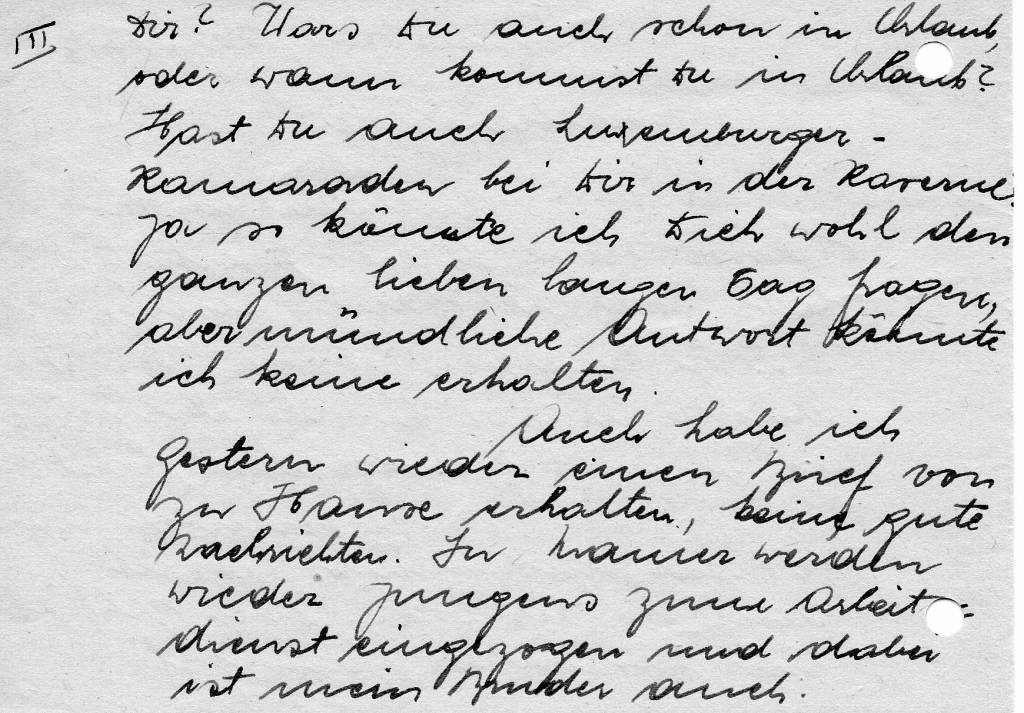 III
Dir? Wars Du auch schon in Urlaub,
oder wann kommst Du in Urlaub?
Hast Du auch Luxemburger-
Kamaraden bei Dir in der Kaverne?
Ja so könnte ich Dich wohl den
ganzen lieben langen Tag fragen,
aber mündliche Antwort könnte
ich keine erhalten.
Auch habe ich
Gestern wieder einen Brief von
zu Hause erhalten, keine gute
Nachrichten. In Mamer werden
wieder Jungens zum Arbeit-
dienst eingezogen und dabei
ist mein Bruder auch.